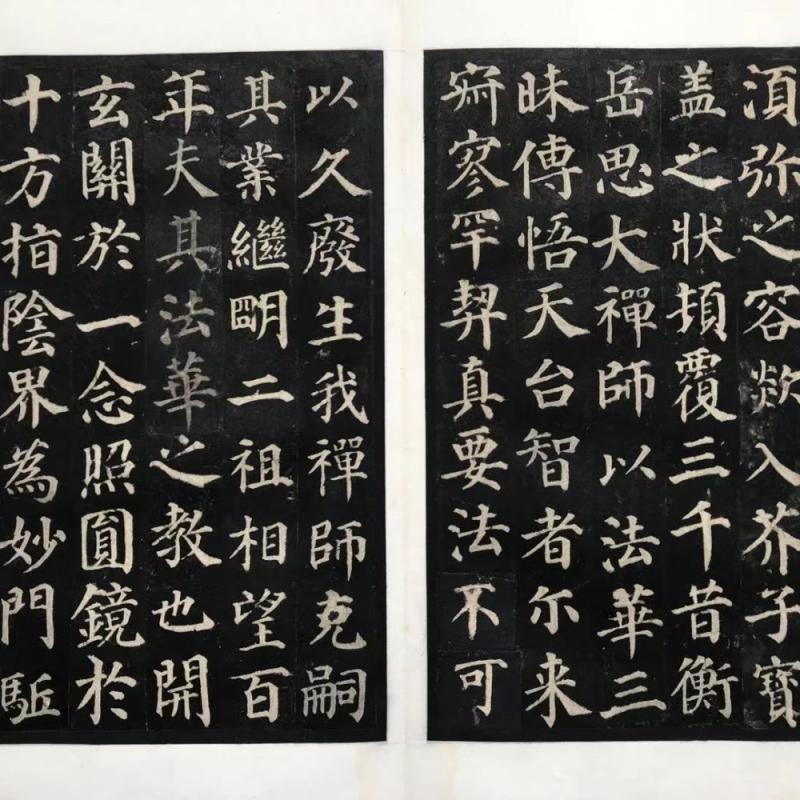 湏弥之容欻入芥子寶
盖之狀頓覆三千昔衡
岳思大禪師以法華三
昧傳悟天台智者尒来
寂寥罕契真要法不可
以久廢生我禪師克嗣
其業繼明二祖相望百
年夫其法華之教也開
玄關於一念照圓鏡於
十方指陰界為妙門駈